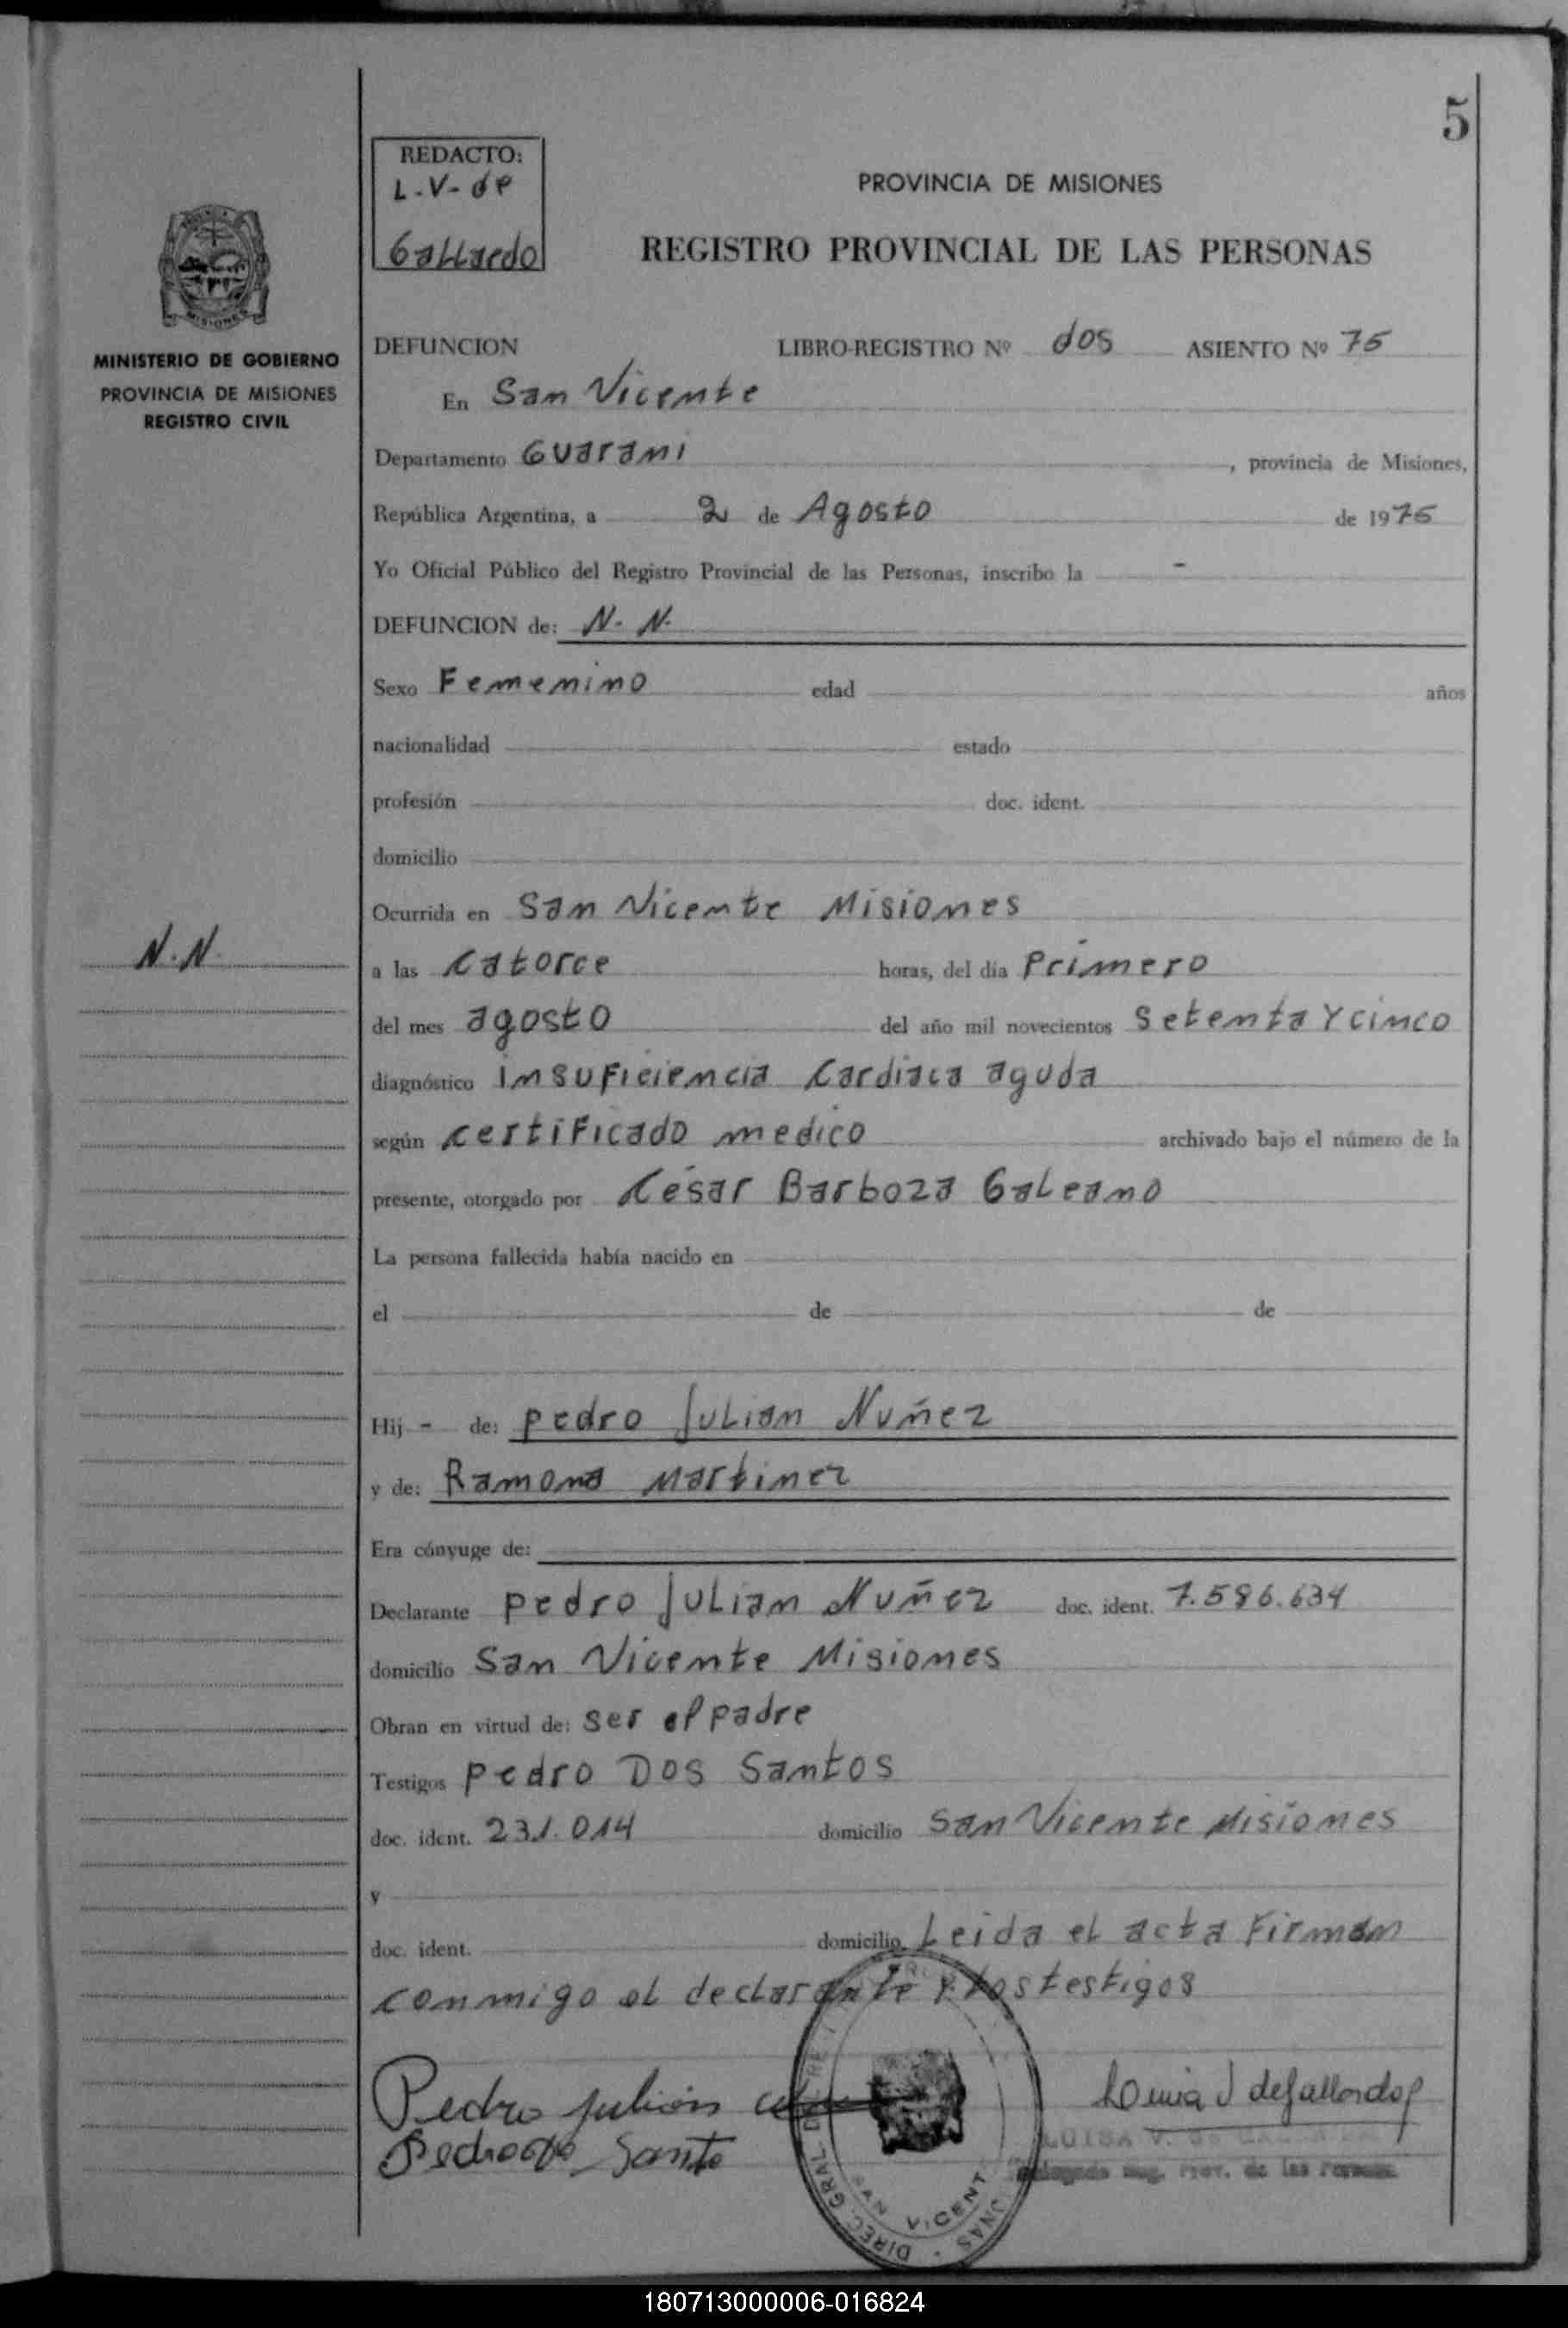 5
REDACTO:
L.V. de
Gallardo
PROVINCIA DE MISIONES
REGISTRO PROVINCIAL DE LAS PERSONAS
MINISTERIO DE GOBIERNO
PROVINCIA DE MISIONES
REGISTRO CIVIL
DEFUNCION LIBRO-REGISTRO Nº dos ASIENTO Nº 75
En San Vicente
Departamento Guarani, provincia de Misiones,
República Argentina, a 2 de Agosto de 1975
Yo Oficial Público del Registro Provincial de las Personas, inscribo la -
DEFUNCION de: N. N.
Sexo Femenino edad años
nacionalidad estado
profesión doc. ident.
domicilio
Ocurrida en San Vicente Misiones
N.N.
a las catorce horas, del día Primero
del mes agosto del año mil novecientos setenta y cinco
diagnóstico insuficiencia cardiaca aguda
según certificado medico archivado bajo el número de la
presente, otorgado por César Barboza Galeano
La persona fallecida había nacido en
el de de
Hij - de: pedro Julian Nuñez
y de: Ramona Martinez
Era cónyuge de:
Declarante pedro Julian Nuñez doc. ident. 7.586.634
domicilio San Vicente Misiones
Obran en virtud de: ser el padre
Testigos pedro Dos Santos
doc. ident. 231.014 domicilio San Vicente Misiones
y
doc. ident. domicilio Leida el acta Firman
conmigo el declarante y los testigos
Pedro Julián
Pedro Santo
LUISA V. de
Reg. Prov. de las
DIREC. GRAL.
SAN VICENT
180713000006-016824